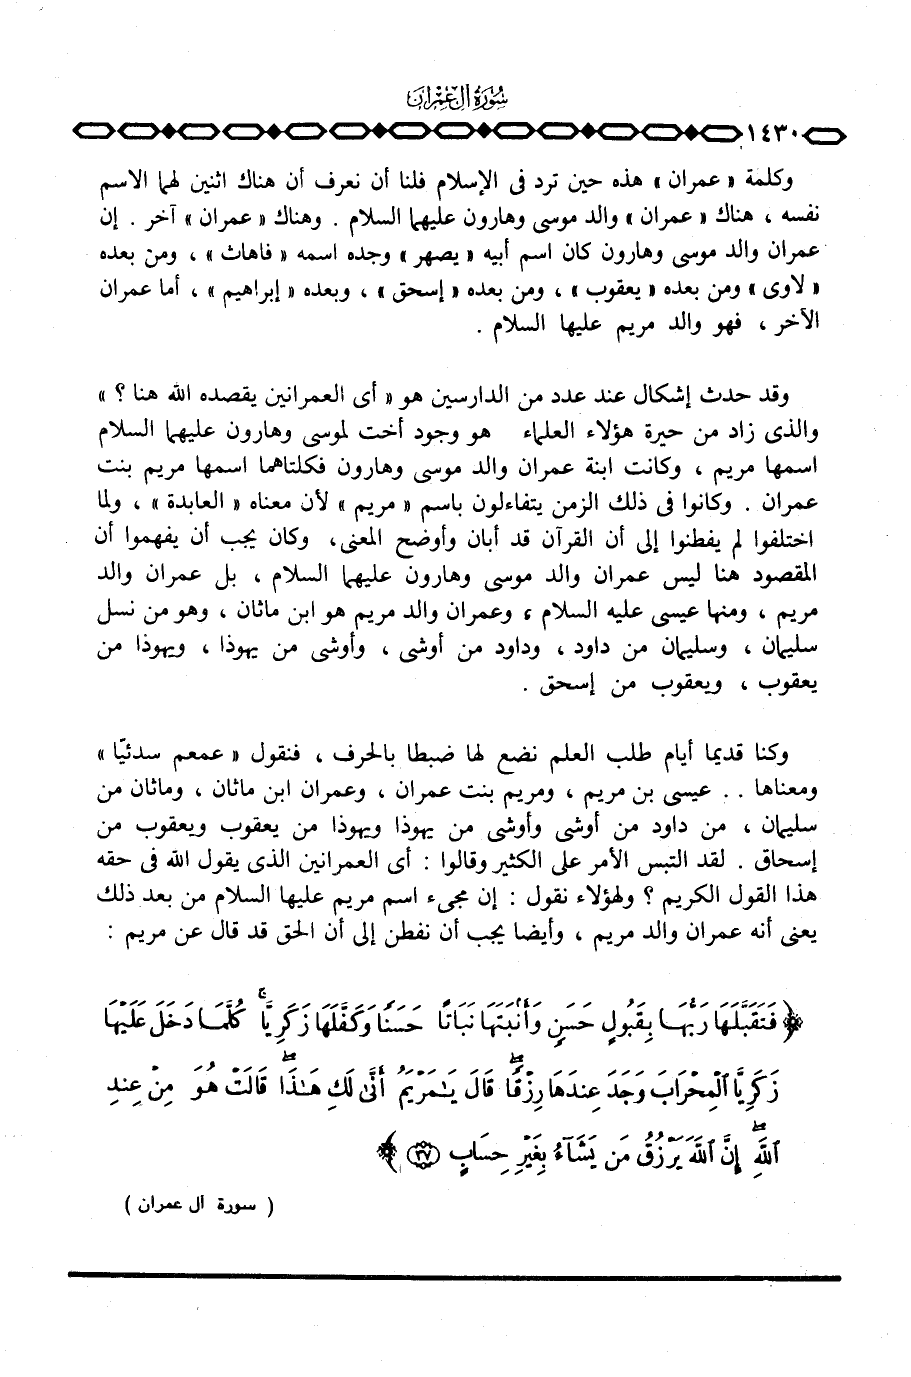 سُورَةُ آلِ عِمْرَانَ
١٤٣٠
وكلمة « عمران » هذه حين ترد فى الإسلام فلنا أن نعرف أن هناك اثنين لهما الاسم
نفسه ، هناك « عمران » والد موسى وهارون عليهما السلام . وهناك « عمران » آخر . إن
عمران والد موسى وهارون كان اسم أبيه « يصهر » وجده اسمه « فاهاث » ، ومن بعده
« لاوى » ومن بعده « يعقوب » ، ومن بعده « إسحق » ، وبعده « إبراهيم » ، أما عمران
الآخر ، فهو والد مريم عليها السلام .
وقد حدث إشكال عند عدد من الدارسين هو « أى العمرانين يقصده الله هنا ؟ »
والذى زاد من حيرة هؤلاء العلماء هو وجود أخت لموسى وهارون عليهما السلام
اسمها مريم ، وكانت ابنة عمران والد موسى وهارون فكلتاهما اسمها مريم بنت
عمران . وكانوا فى ذلك الزمن يتفاءلون باسم « مريم » لأن معناه « العابدة » ، ولما
اختلفوا لم يفطنوا إلى أن القرآن قد أبان وأوضح المعنى، وكان يجب أن يفهموا أن
المقصود هنا ليس عمران والد موسى وهارون عليهما السلام ، بل عمران والد
مريم ، ومنها عيسى عليه السلام ، وعمران والد مريم هو ابن ماثان ، وهو من نسل
سليمان ، وسليمان من داود ، وداود من أوشى ، وأوشى من يهوذا ، ويهوذا من
يعقوب ، ويعقوب من إسحق .
وكنا قديما أيام طلب العلم نضع لها ضبطا بالحرف ، فنقول « عمعم سدئيّا »
ومعناها . . عيسى بن مريم ، ومريم بنت عمران ، وعمران ابن ماثان ، وماثان من
سليمان ، من داود من أوشى وأوشى من يهوذا ويهوذا من يعقوب ويعقوب من
إسحاق . لقد التبس الأمر على الكثير وقالوا : أى العمرانين الذى يقول الله فى حقه
هذا القول الكريم ؟ ولهؤلاء نقول : إن مجىء اسم مريم عليها السلام من بعد ذلك
يعنى أنه عمران والد مريم ، وأيضا يجب أن نفطن إلى أن الحق قد قال عن مريم :
﴿ فَتَقَبَّلَهَا رَبُّهَا بِقَبُولٍ حَسَنٍ وَأَنۢبَتَهَا نَبَاتًا حَسَنًا وَكَفَّلَهَا زَكَرِيَّا ۖ كُلَّمَا دَخَلَ عَلَيْهَا
زَكَرِيَّا ٱلْمِحْرَابَ وَجَدَ عِندَهَا رِزْقًا ۖ قَالَ يَٰمَرْيَمُ أَنَّىٰ لَكِ هَٰذَا ۖ قَالَتْ هُوَ مِنْ عِندِ
ٱللَّهِ ۖ إِنَّ ٱللَّهَ يَرْزُقُ مَن يَشَآءُ بِغَيْرِ حِسَابٍ ٣٧ ﴾
( سورة آل عمران )